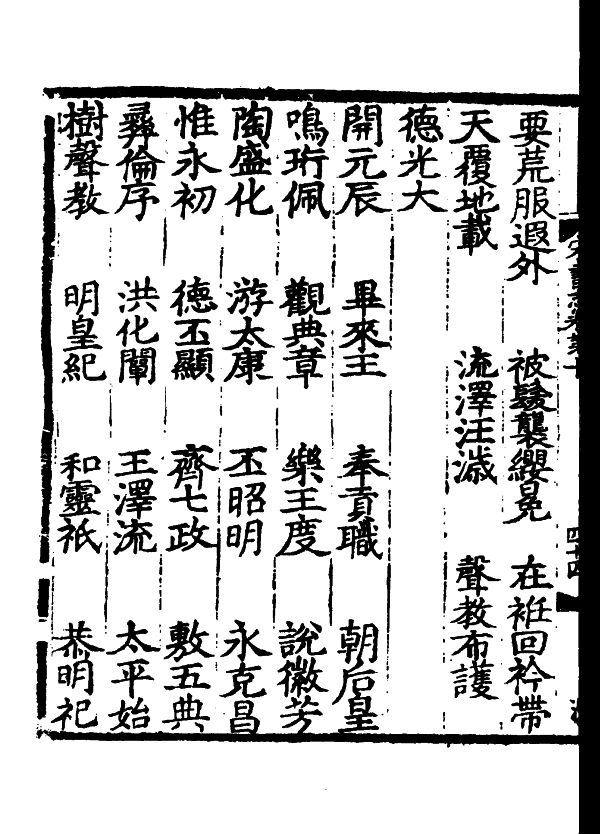 四十四
要荒服遐外 被髮襲纓冕 在袵回衿帶
天覆地載 流澤汪濊 聲教布護
德光大
開元辰 畢來王 奉貢職 朝后皇
鳴珩佩 觀典章 樂王度 說徽芳
陶盛化 游太康 丕昭明 永克昌
惟永初 德丕顯 齊七政 敷五典
彝倫序 洪化闡 王澤流 太平始
樹聲教 明皇紀 和靈祇 恭明祀